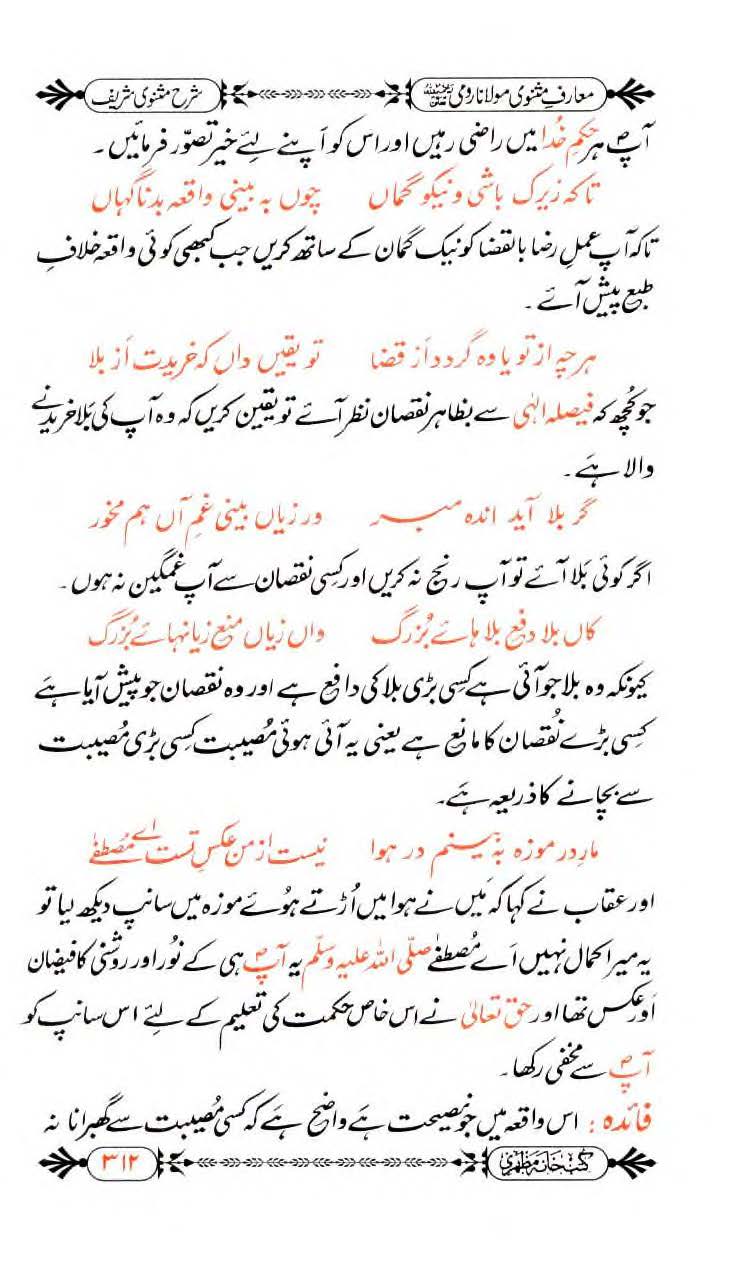 معارفِ مثنوی مولانا رومی رحمۃ اللہ علیہ شرح مثنوی شریف
آپؐ ہر حکمِ خُدا میں راضی رہیں اور اس کو اَپنے لئے خیر تصوّر فرمائیں۔
تا کہ زیرک باشی و نیکو گماں چوں بہ بینی واقعہ بد ناگہاں
تاکہ آپ عملِ رضا بالقضا کو نیک گمان کے ساتھ کریں جب کبھی کوئی واقعہ خلافِ
طبع پیش آئے۔
ہر چہ از تو یا وہ گردد اَز قضا تو یقیں داں کہ خریدت اَز بلا
جو کُچھ کہ فیصلہ الٰہی سے بظاہر نقصان نظر آئے تو یقین کریں کہ وہ آپ کی بَلا خریدنے
والا ہَے۔
گر بلا آید اندہ مبر ور زیاں بینی غمِ آں ہم مخور
اگر کوئی بَلا آئے تو آپ رنج نہ کریں اور کِسی نقصان سے آپ غمگین نہ ہوں۔
کاں بلا دفعِ بلا ہائے بُزرگ واں زیاں منعِ زیانہائے بُزرگ
کیونکہ وہ بلا جو آئی ہے کسِی بڑی بلا کی دافع ہے اور وہ نقصان جو پیش آیا ہَے
کسِی بڑے نُقصان کا مانع ہے یعنی یہ آئی ہوئی مُصیبت کسِی بڑی مُصیبت
سے بچانے کا ذریعہ ہَے۔
مار در موزہ بہ بینم در ہوا نیست از من عکسِ تست اے مُصطفےٰ
اور عقاب نے کہا کہ مَیں نے ہوا میں اُڑتے ہُوئے موزہ میں سانپ دیکھ لیا تو
یہ میرا کمال نہیں اَے مُصطفےٰ صلّی اللہ علیہ وسلّم یہ آپؐ ہی کے نُور اور روشنی کا فیضان
اَور عکس تھا اور حق تعالیٰ نے اس خاص حکمت کی تعلیم کے لئے اس سانپ کو
آپؐ سے مخفی رکھا۔
فائدہ : اس واقعہ میں جو نصیحت ہَے واضح ہَے کہ کسی مُصیبت سے گھبرانا نہ
کتب خانہ مظہری ۳۱۲